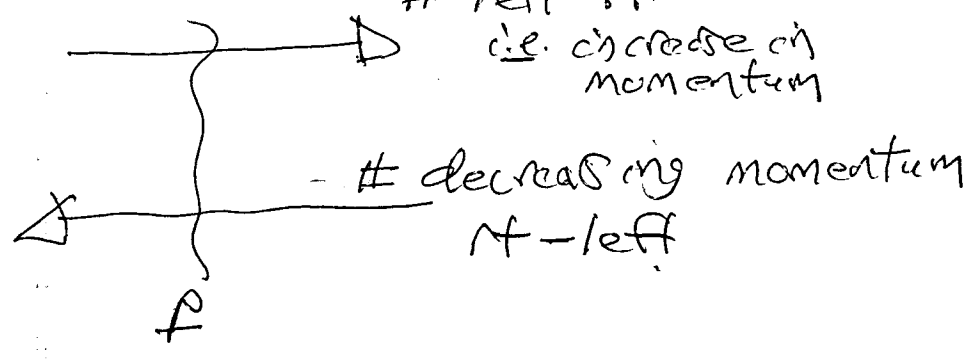 # left
i.e. increase in
momentum
# decreasing momentum
rt-left
f